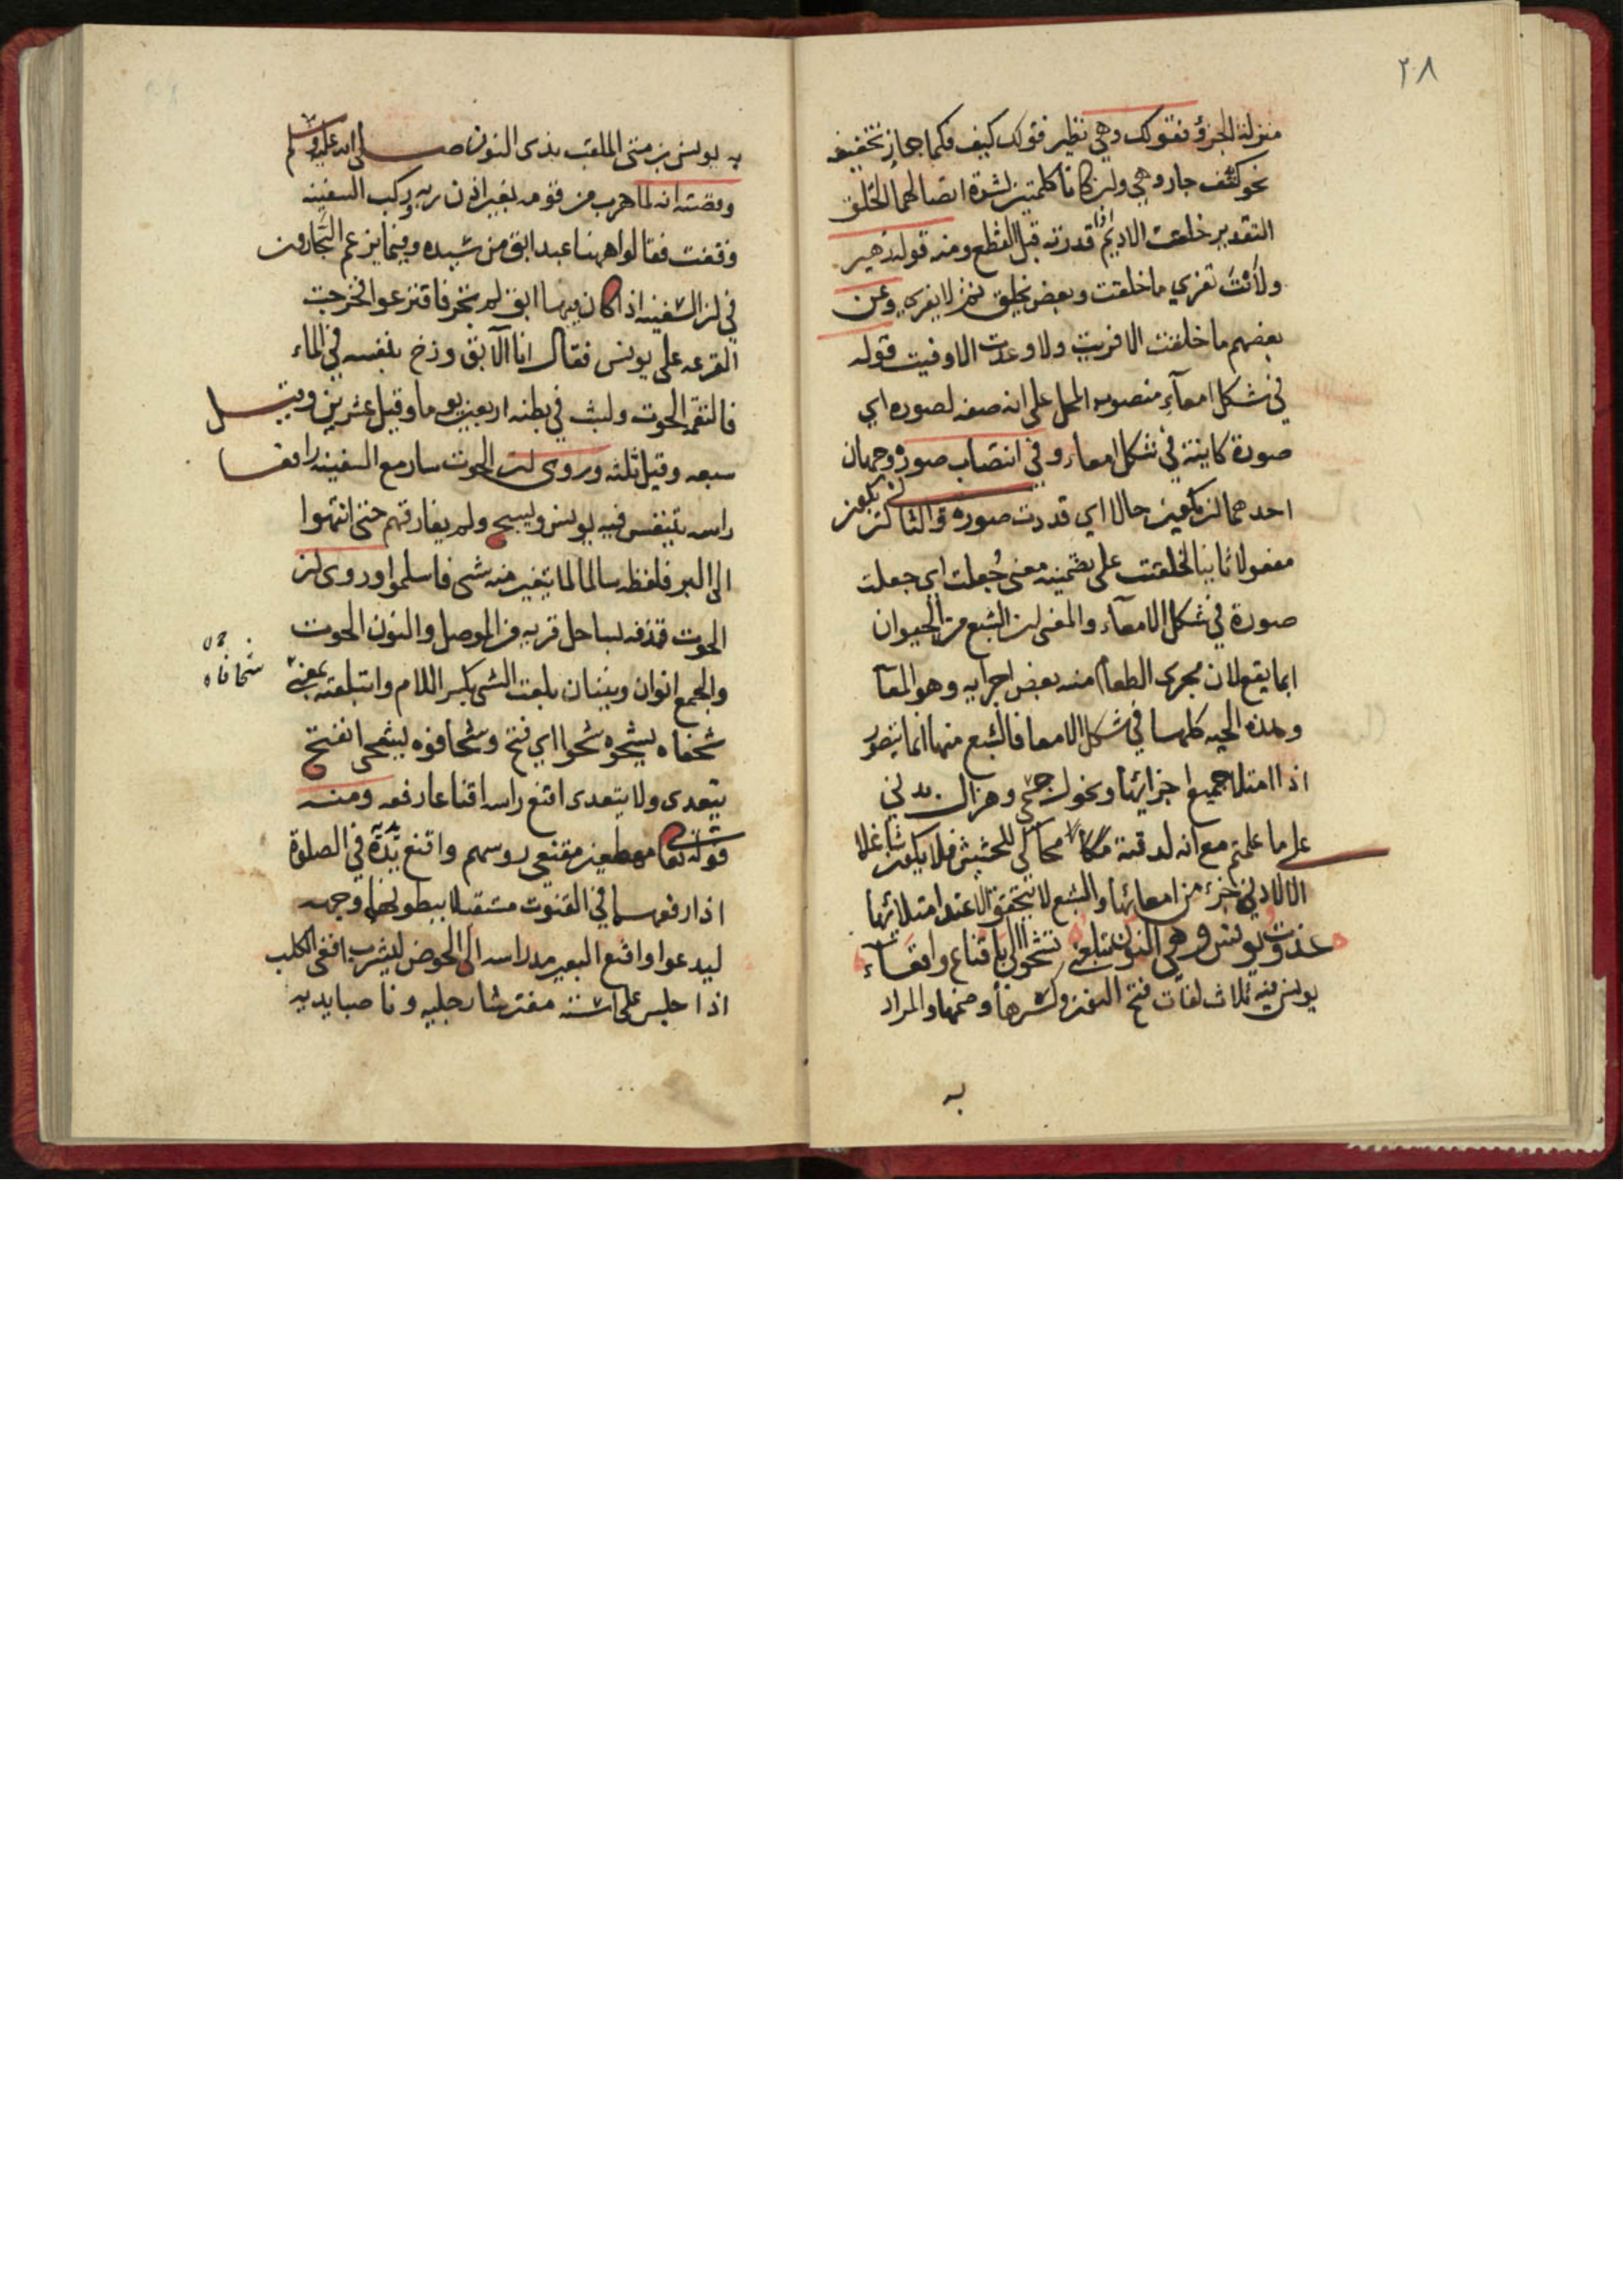 ٢٨
منزلة الجزؤ فقولك وهي نظير قولك كيف فكما جاز تخفيف
نحو كتف جاز وهي ولن كانا كلمتين لشدة اتصالهما الخلق
التقدير خلقت الاديم اذا قدرته قبل القطع ومنه قول زهير
ولأنت تفري ما خلقت وبعض يخلق ثم لا يفري وعن
بعضهم ما خلقت الا فريت ولا وعدت الا وفيت قوله
في شكل امعآء منصوب المحل على انه صفه لصوره اي
صورة كاينة في شكل امعاء وفي انتصاب صوره وجهان
احدهما لن يكون حالا اي قدرت صورة والثاني لن يكون
مفعولا ثانيا لخلقت على تضمينه معنى جُعلت اي جعلت
صورة في شكل الامعآء والمعنى لن الشبع من الحيوان
انما يقع لان مجرى الطعام منه بعض اجزايه وهو المعآ
وهذه الحيه كلها في شكل الامعا فالشبع منها انما يتصور
اذا امتلا جميع اجزائها ونحول جسمي وهزال بدني
على ما علمتم مع انه لدقته محاكي للحشيش فلا يكون شاغلا
الا لادنى جزء من امعائها والشبع لا يتحقق الا عند امتلائها
غذوت يونس وهي النون تبلعني تشحو الي باقناع واقعاء
يونس فيه ثلاث لغات فتح النون وكسرها وضمها والمراد
به
به يونس بن متى الملقب بذى النون صلى الله عليه وسلم
وقصته انه لما هرب من قومه بغير اذن ربه وركب السفينه
وقفت فقالوا ههنا عبد ابق من سيده وفيما يزعم التجارون
في لن السفينه اذا كان فيها ابق لم تجر فاقترعوا فخرجت
القرعه على يونس فقال انا الآبق وزخ بنفسه في الماء
فالتقمه الحوت ولبث في بطنه اربعين يوما وقيل عشرين وقيل
سبعه وقيل ثلثه وروى لن الحوت سار مع السفينه رافعا
راسه يتنفس فيه يونس ويسبح ولم يفارقهم حتى انتهوا
الى البر فلفظه سالما لما يتغير منه شي فاسلموا وروى لن
الحوت قذفه بساحل قريه من الموصل والنون الحوت
والجمع انوان ونينان بلعت الشي بكسر اللام وابتلعته بمعنى
شحفاه يشحوه شحوا اي فتح وشحا فوه ليشحى انفتح
يتعدى ولا يتعدى اقنع راسه اقناعا رفعه ومنه
قوله تعا مهطعين مقنعي روسهم واقنع يديه في الصلوة
اذا رفعهما في القنوت مستقبلا ببطونهما وجهه
ليدعوا واقنع البعير مد راسه الى الحوض ليشرب اقعى الكلب
اذا جلس على استه مفترشا رجليه وناصبا يديه